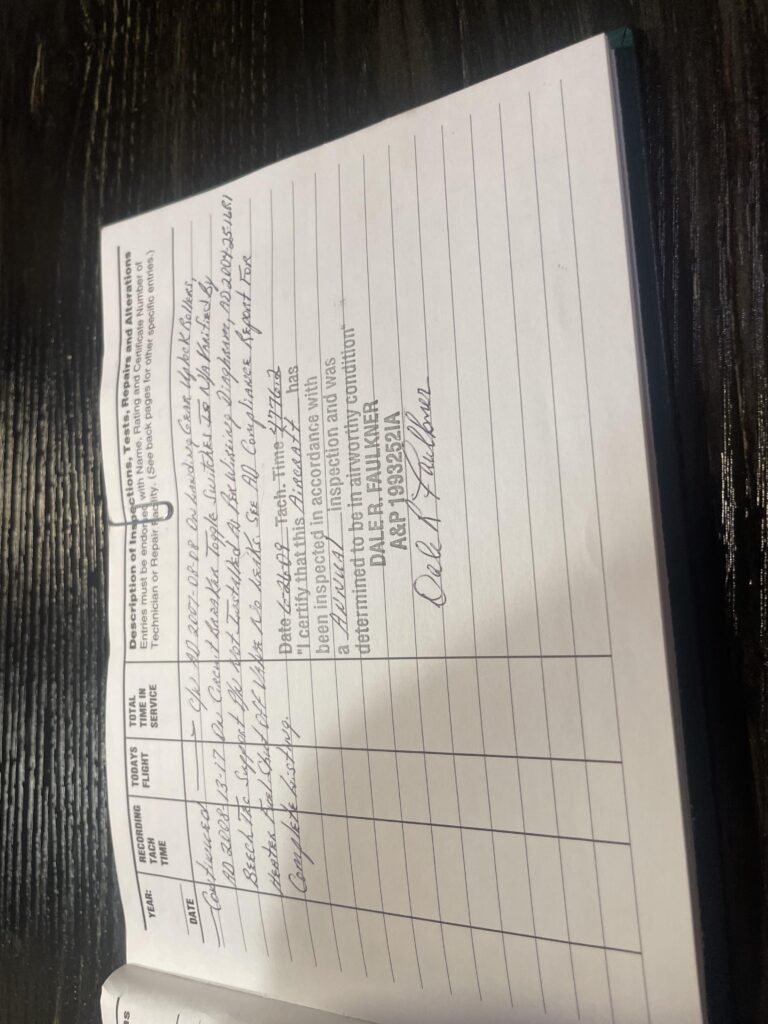 es
Description of Inspections, Tests, Repairs and Alterations
YEAR: RECORDING TACH TIME TODAYS FLIGHT TOTAL TIME IN SERVICE
Entries must be endorsed with Name, Rating and Certificate Number of
Technician or Repair Facility. (See back pages for other specific entries.)
DATE
Continued C/W AD 2007-08-08 On Landing Gear Uplock Rollers,
AD 2008-13-17 On Circuit Breaker Toggle Switches Is N/A Verified By
Beech Tec Support P/N Not Installed As Per Wiring Diaphram, AD 2004-25-16R1
Heater Fuel Shut Off Valve No Leaks. See AD Compliance Report For
Complete Listing.
Date 6-26-09 Tach. Time 4776.2
"I certify that this Aircraft has
been inspected in accordance with
a Annual Inspection and was
determined to be in airworthy condition"
DALE R. FAULKNER
A&P 1993252IA
Dale R Faulkner